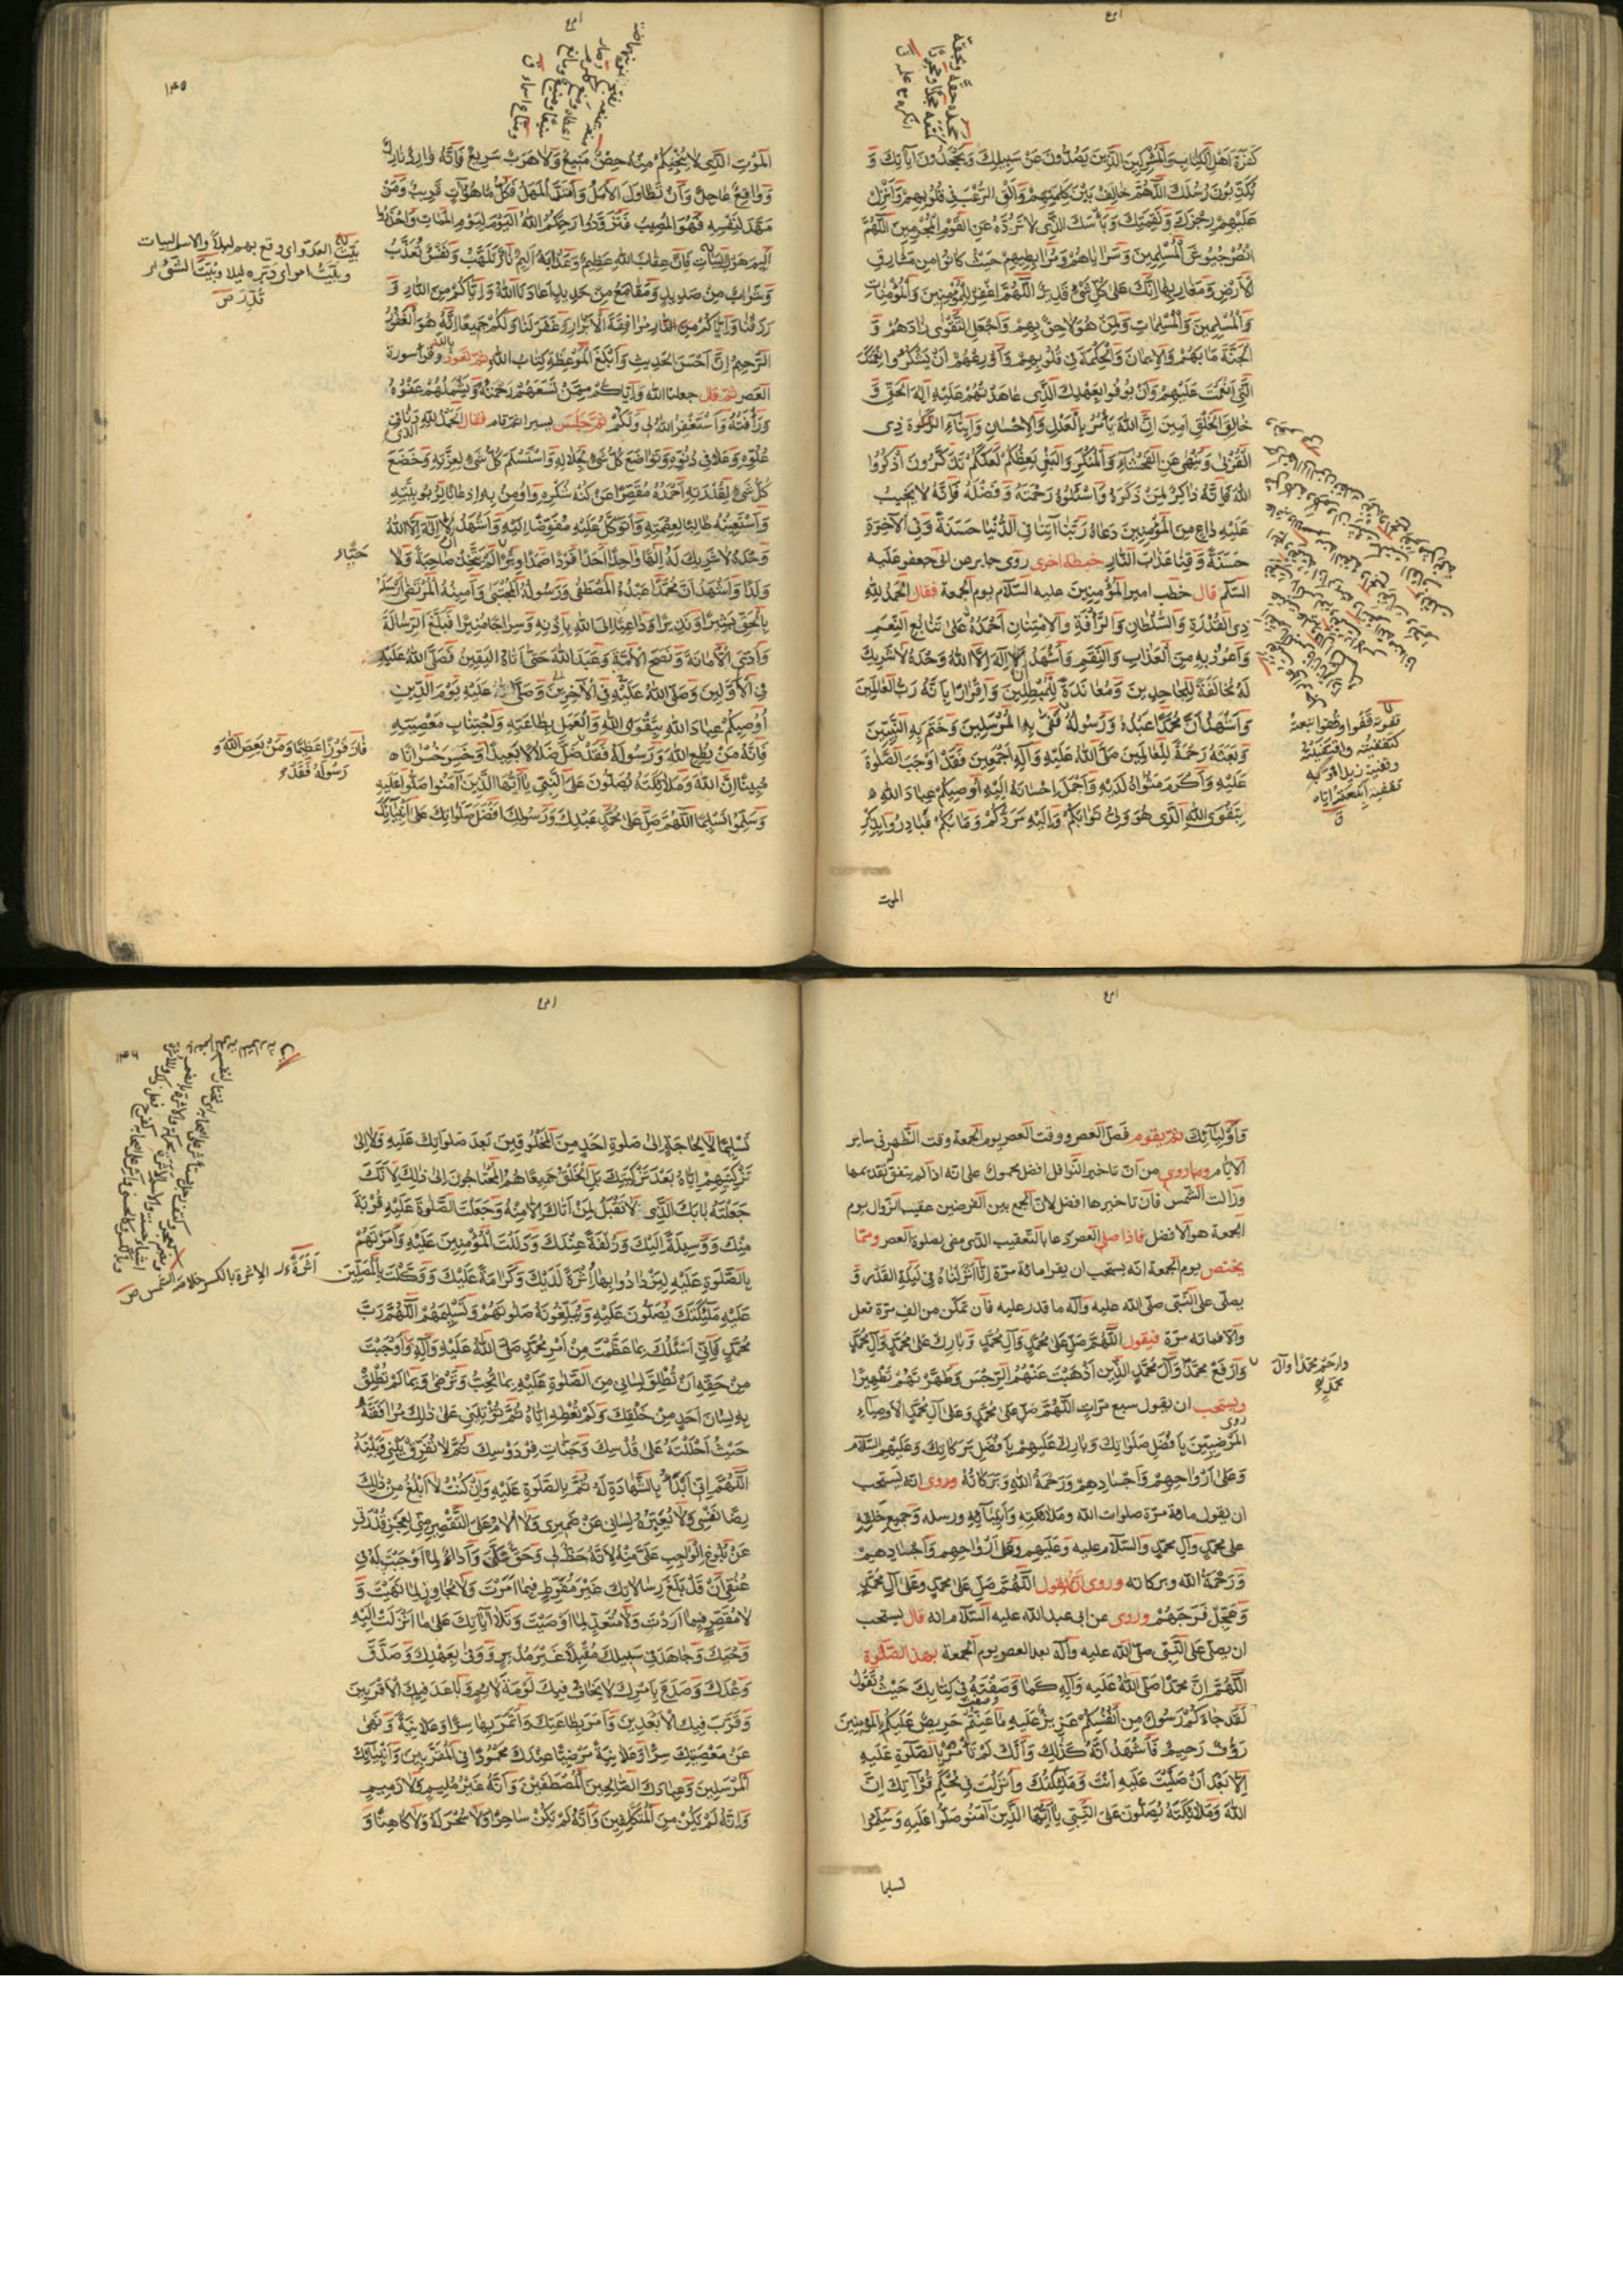 كفرة اهل الكتاب والمشركين الذين يصدون عن سبيلك ويجحدون آياتك و
يكذبون رسلك اللهم خالف بين كلمتهم والق الرعب في قلوبهم وانزل
عليهم رجزك ونقمتك وبأسك الذي لا تردّه عن القوم المجرمين اللهم
انصر جيوش المسلمين وسراياهم ومرابطيهم حيث كانوا من مشارق
الارض ومغاربها انك على كل شيء قدير اللهم اغفر للمؤمنين والمؤمنات
والمسلمين والمسلمات ولمن هو لاحق بهم واجعل التقوى زادهم و
الجنة مآبهم والايمان والحكمة في قلوبهم واوزعهم ان يشكروا نعمتك
التي انعمت عليهم وان يوفوا بعهدك الذي عاهدتهم عليه اله الحق و
خالق الخلق امين ان الله يأمر بالعدل والاحسان وايتاء ذي
القربى وينهى عن الفحشاء والمنكر والبغي يعظكم لعلكم تذكرون اذكروا
الله فانه ذاكر لمن ذكره واسئلوه رحمته وفضله فانه لا يخيب
عليه داع من المؤمنين دعاه ربنا آتنا في الدنيا حسنة وفي الآخرة
حسنة وقنا عذاب النار خطبة اخرى روى جابر عن ابي جعفر عليه
السلم قال خطب امير المؤمنين عليه السلام يوم الجمعة فقال الحمد لله
ذي القدرة والسلطان والرأفة والامتنان احمده على تتابع النعم
واعوذ به من العذاب والنقم واشهد ان لا اله الا الله وحده لا شريك
له مخالفة للجاحدين ومعاندة للمبطلين واقرارا بانه رب العالمين
واشهد ان محمدا عبده ورسوله قفى به المرسلين وختم به النبيين
وبعثه رحمة للعالمين صلى الله عليه وآله اجمعين فقد اوجب الصلوة
عليه واكرم مثواه لديه واجمل احسانه اليه اوصيكم عباد الله
بتقوى الله الذي هو ولي ثوابكم واليه مردكم ومآبكم فبادروا بذكر
الموت
الموت الذي لا ينجيكم منه حصن منيع ولا هرب سريع فانه وارد نازل
وواقع عاجل وان تطاول الامل وامتد المهل فكل ما هو آت قريب ومن
مهد لنفسه فهو المصيب فتزودوا رحمكم الله اليوم ليوم الممات واحذروا
اليم هول البيات فان عقاب الله عظيم وعذابه اليم نار تلهب ونفس تعذب
وشراب من صديد ومقامع من حديد اعاذنا الله واياكم من النار و
رزقنا واياكم مرافقة الابرار وغفر لنا ولكم جميعا انه هو الغفور
الرحيم ان احسن الحديث وابلغ الموعظة كتاب الله ثم تعوذ بالله وقرأ سورة
العصر ثم قال جعلنا الله واياكم ممن تسعهم رحمته ويشملهم عفوه
ورأفته واستغفر الله لي ولكم ثم جلس يسيرا ثم قام فقال الحمد لله الذي دنا في
علوه وعلا في دنوه وتواضع كل شيء لجلاله واستسلم كل شيء لعزته وخضع
كل شيء لقدرته احمده مقصرا عن كنه شكره واومن به اذعانا لربوبيته
واستعينه طالبا لعصمته واتوكل عليه مفوضا اليه واشهد ان لا اله الا الله
وحده لا شريك له الها واحدا احدا فردا صمدا وترا لم يتخذ صاحبة ولا
ولدا واشهد ان محمدا عبده المصطفى ورسوله المجتبى وامينه المرتضى ارسله
بالحق بشيرا ونذيرا وداعيا الى الله باذنه وسراجا منيرا فبلغ الرسالة
وادى الامانة ونصح الامة وعبد الله حتى اتاه اليقين فصلى الله عليه
في الاولين وصلى الله عليه في الآخرين وصلى الله عليه يوم الدين
اوصيكم عباد الله بتقوى الله والعمل بطاعته واجتناب معصيته
فانه من يطع الله ورسوله فقد ضل ضلالا بعيدا وخسر خسرانا
مبينا ان الله وملائكته يصلون على النبي يا ايها الذين آمنوا صلوا عليه
وسلموا تسليما اللهم صل على محمد عبدك ورسولك افضل صلواتك على انبيائك
فاز فوزا عظيما ومن يعص الله و
رسوله فقد
واوليائك ثم يقوم فصل العصر ووقت العصر يوم الجمعة وقت الظهر في ساير
الايام وما روي من ان تاخير النوافل افضل محمول على انه اذا لم يتفق تقديمها
وزالت الشمس فان تاخيرها افضل لان الجمع بين الفرضين عقيب الزوال يوم
الجمعة هو الافضل فاذا صلى العصر دعا بالتعقيب الذي مضى بصلوة العصر ومما
يختص يوم الجمعة انه يستحب ان يقرأ مائة مرة انا انزلناه في ليلة القدر و
يصلي على النبي صلى الله عليه وآله ما قدر عليه فان تمكن من الف مرة فعل
والا فمائة مرة فيقول اللهم صل على محمد وآل محمد وبارك على محمد وآل محمد
وارحم محمدا وآل محمد
وارفع محمدا وآل محمد الذين اذهبت عنهم الرجس وطهرتهم تطهيرا
ويستحب ان يقول سبع مرات اللهم صل على محمد وعلى آل محمد الاوصياء
المرضيين بافضل صلواتك وبارك عليهم بافضل بركاتك وعليهم السلام
وعلى ارواحهم واجسادهم ورحمة الله وبركاته وروى انه يستحب
ان يقول مائة مرة صلوات الله وملائكته وانبيائه ورسله وجميع خلقه
على محمد وآل محمد والسلام عليه وعليهم وعلى ارواحهم واجسادهم
ورحمة الله وبركاته وروى ان يقول اللهم صل على محمد وعلى آل محمد
وعجل فرجهم وروى عن ابي عبد الله عليه السلام انه قال يستحب
ان يصلي على النبي صلى الله عليه وآله بعد العصر يوم الجمعة بهذه الصلوة
اللهم ان محمدا صلى الله عليه وآله كما وصفته في كتابك حيث تقول
لقد جاءكم رسول من انفسكم عزيز عليه ما عنتم حريص عليكم بالمؤمنين
رؤف رحيم فاشهد انه كذلك وانك لم تأمر بالصلوة عليه
الا بعد ان صليت عليه انت وملئكتك وانزلت في محكم قرآنك ان
الله وملائكته يصلون على النبي يا ايها الذين آمنوا صلوا عليه وسلموا
تسليما
تسليما لا لحاجة الى صلوة احد من المخلوقين بعد صلواتك عليه ولا الى
تزكيتهم اياه بعد تزكيتك بل الخلق جميعا هم المحتاجون الى ذلك لانك
جعلته بابك الذي لا تقبل لمن اتاك الا منه وجعلت الصلوة عليه قربة
منك ووسيلة اليك وزلفة عندك ودللت المؤمنين عليه وامرتهم
بالصلوة عليه ليزدادوا بها اثرة لديك وكرامة عليك ووكلت بالمصلين
عليه ملئكتك يصلون عليه ويبلغونه صلوتهم وتسليمهم اللهم رب
محمد فاني اسئلك بما عظمت من امر محمد صلى الله عليه وآله واوجبت
من حقه ان تطلق لساني من الصلوة عليه بما تحب وترضى وبما لم تطلق
به لسان احد من خلقك ولم تعطه اياه ثم تؤتيني على ذلك مرافقته
حيث احللته على قدسك وجنات فردوسك ثم لا تفرق بيني وبينه
اللهم اني ابدأ بالشهادة له ثم بالصلوة عليه وان كنت لا ابلغ من ذلك
رضا نفسي ولا يعبره لساني عن ضميري ولا الام على التقصير مني لعجز قدرتي
عن بلوغ الواجب علي منه لانه حظ لي وحق علي واداء لما اوجبت له في
عنقي ان قد بلغ رسالاتك غير مفرط فيما امرت ولا مجاوز لما نهيت و
لا مقصر فيما اردت ولا متعد لما اوصيت وتلا آياتك على ما انزلت اليه
وحيك وجاهد في سبيلك مقبلا غير مدبر ووفى بعهدك وصدق
وعدك وصدع بامرك لا يخاف فيك لومة لائم وباعد فيك الاقربين
وقرب فيك الابعدين وامر بطاعتك وائتمر بها سرا وعلانية ونهى
عن معصيتك سرا وعلانية مرضيا عندك محمودا في المقربين وانبيائك
المرسلين وعبادك الصالحين المصطفين وانه غير مليم ولا ذميم
وانه لم يكن من المتكلفين وانه لم يكن ساحرا ولا سحر له ولا كاهنا و